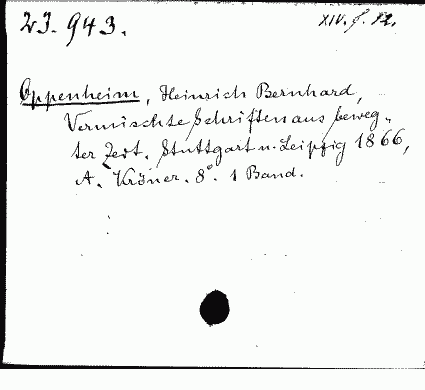 23.943.
XIV. f. 12.
Oppenheim, Heinrich Bernhard,
Vermischte Schriften aus beweg-
ter Zeit. Stuttgart u. Leipzig 1866,
A. Kröner. 8°. 1 Band.